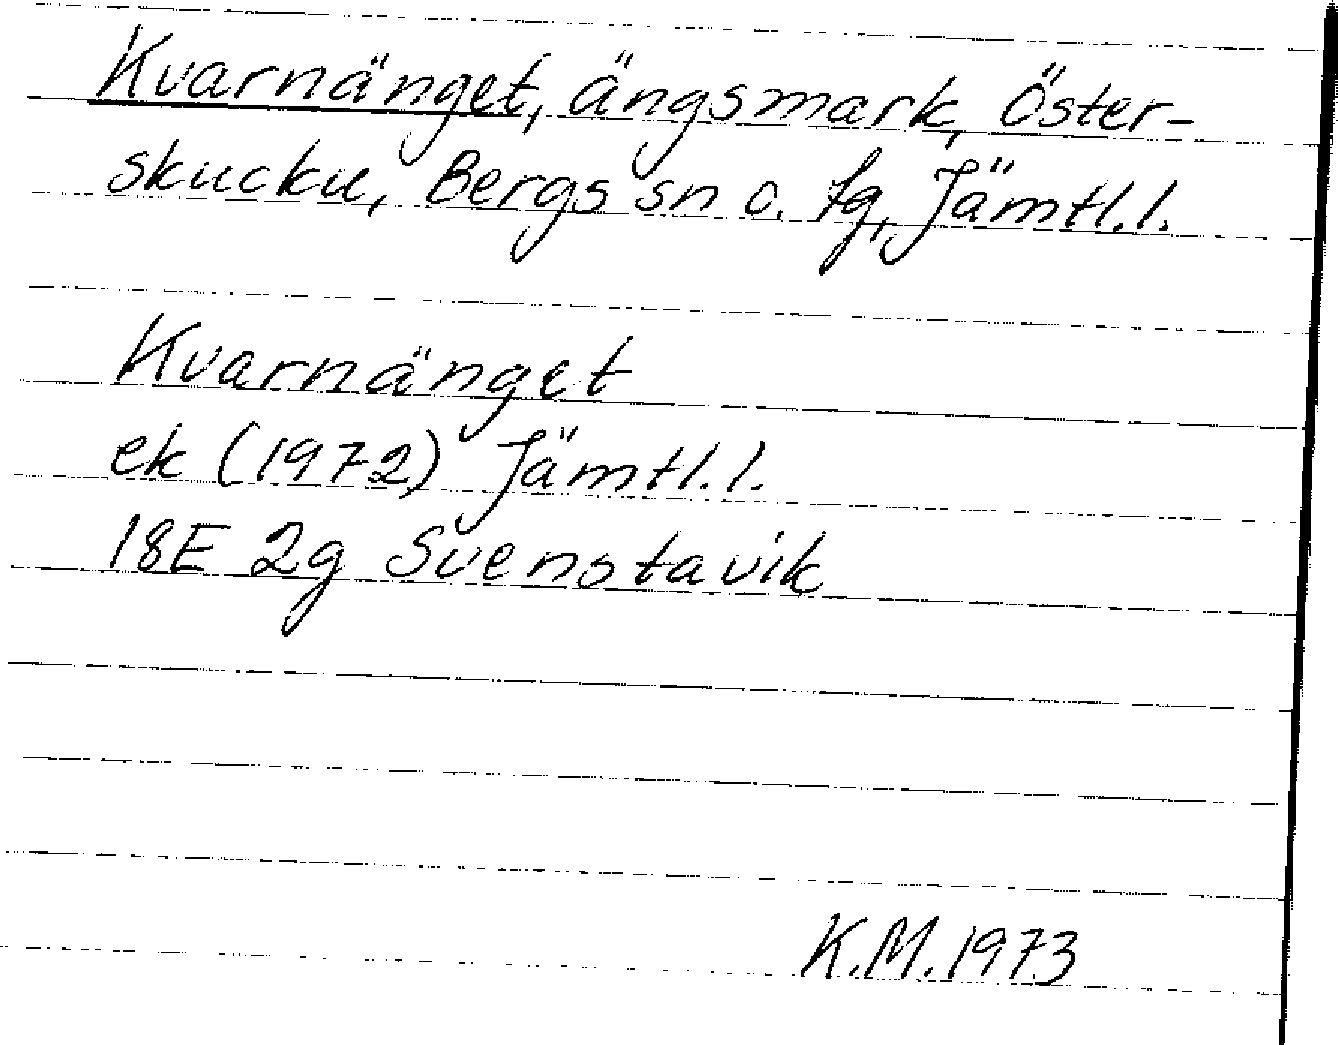 Kvarnänget, ängsmark, Öster-
skucku, Bergs sn o. tg, Jämtl.l.
Kvarnänget
ek (1972) Jämtl.l.
18E 2g Svenstavik
K.M.1973